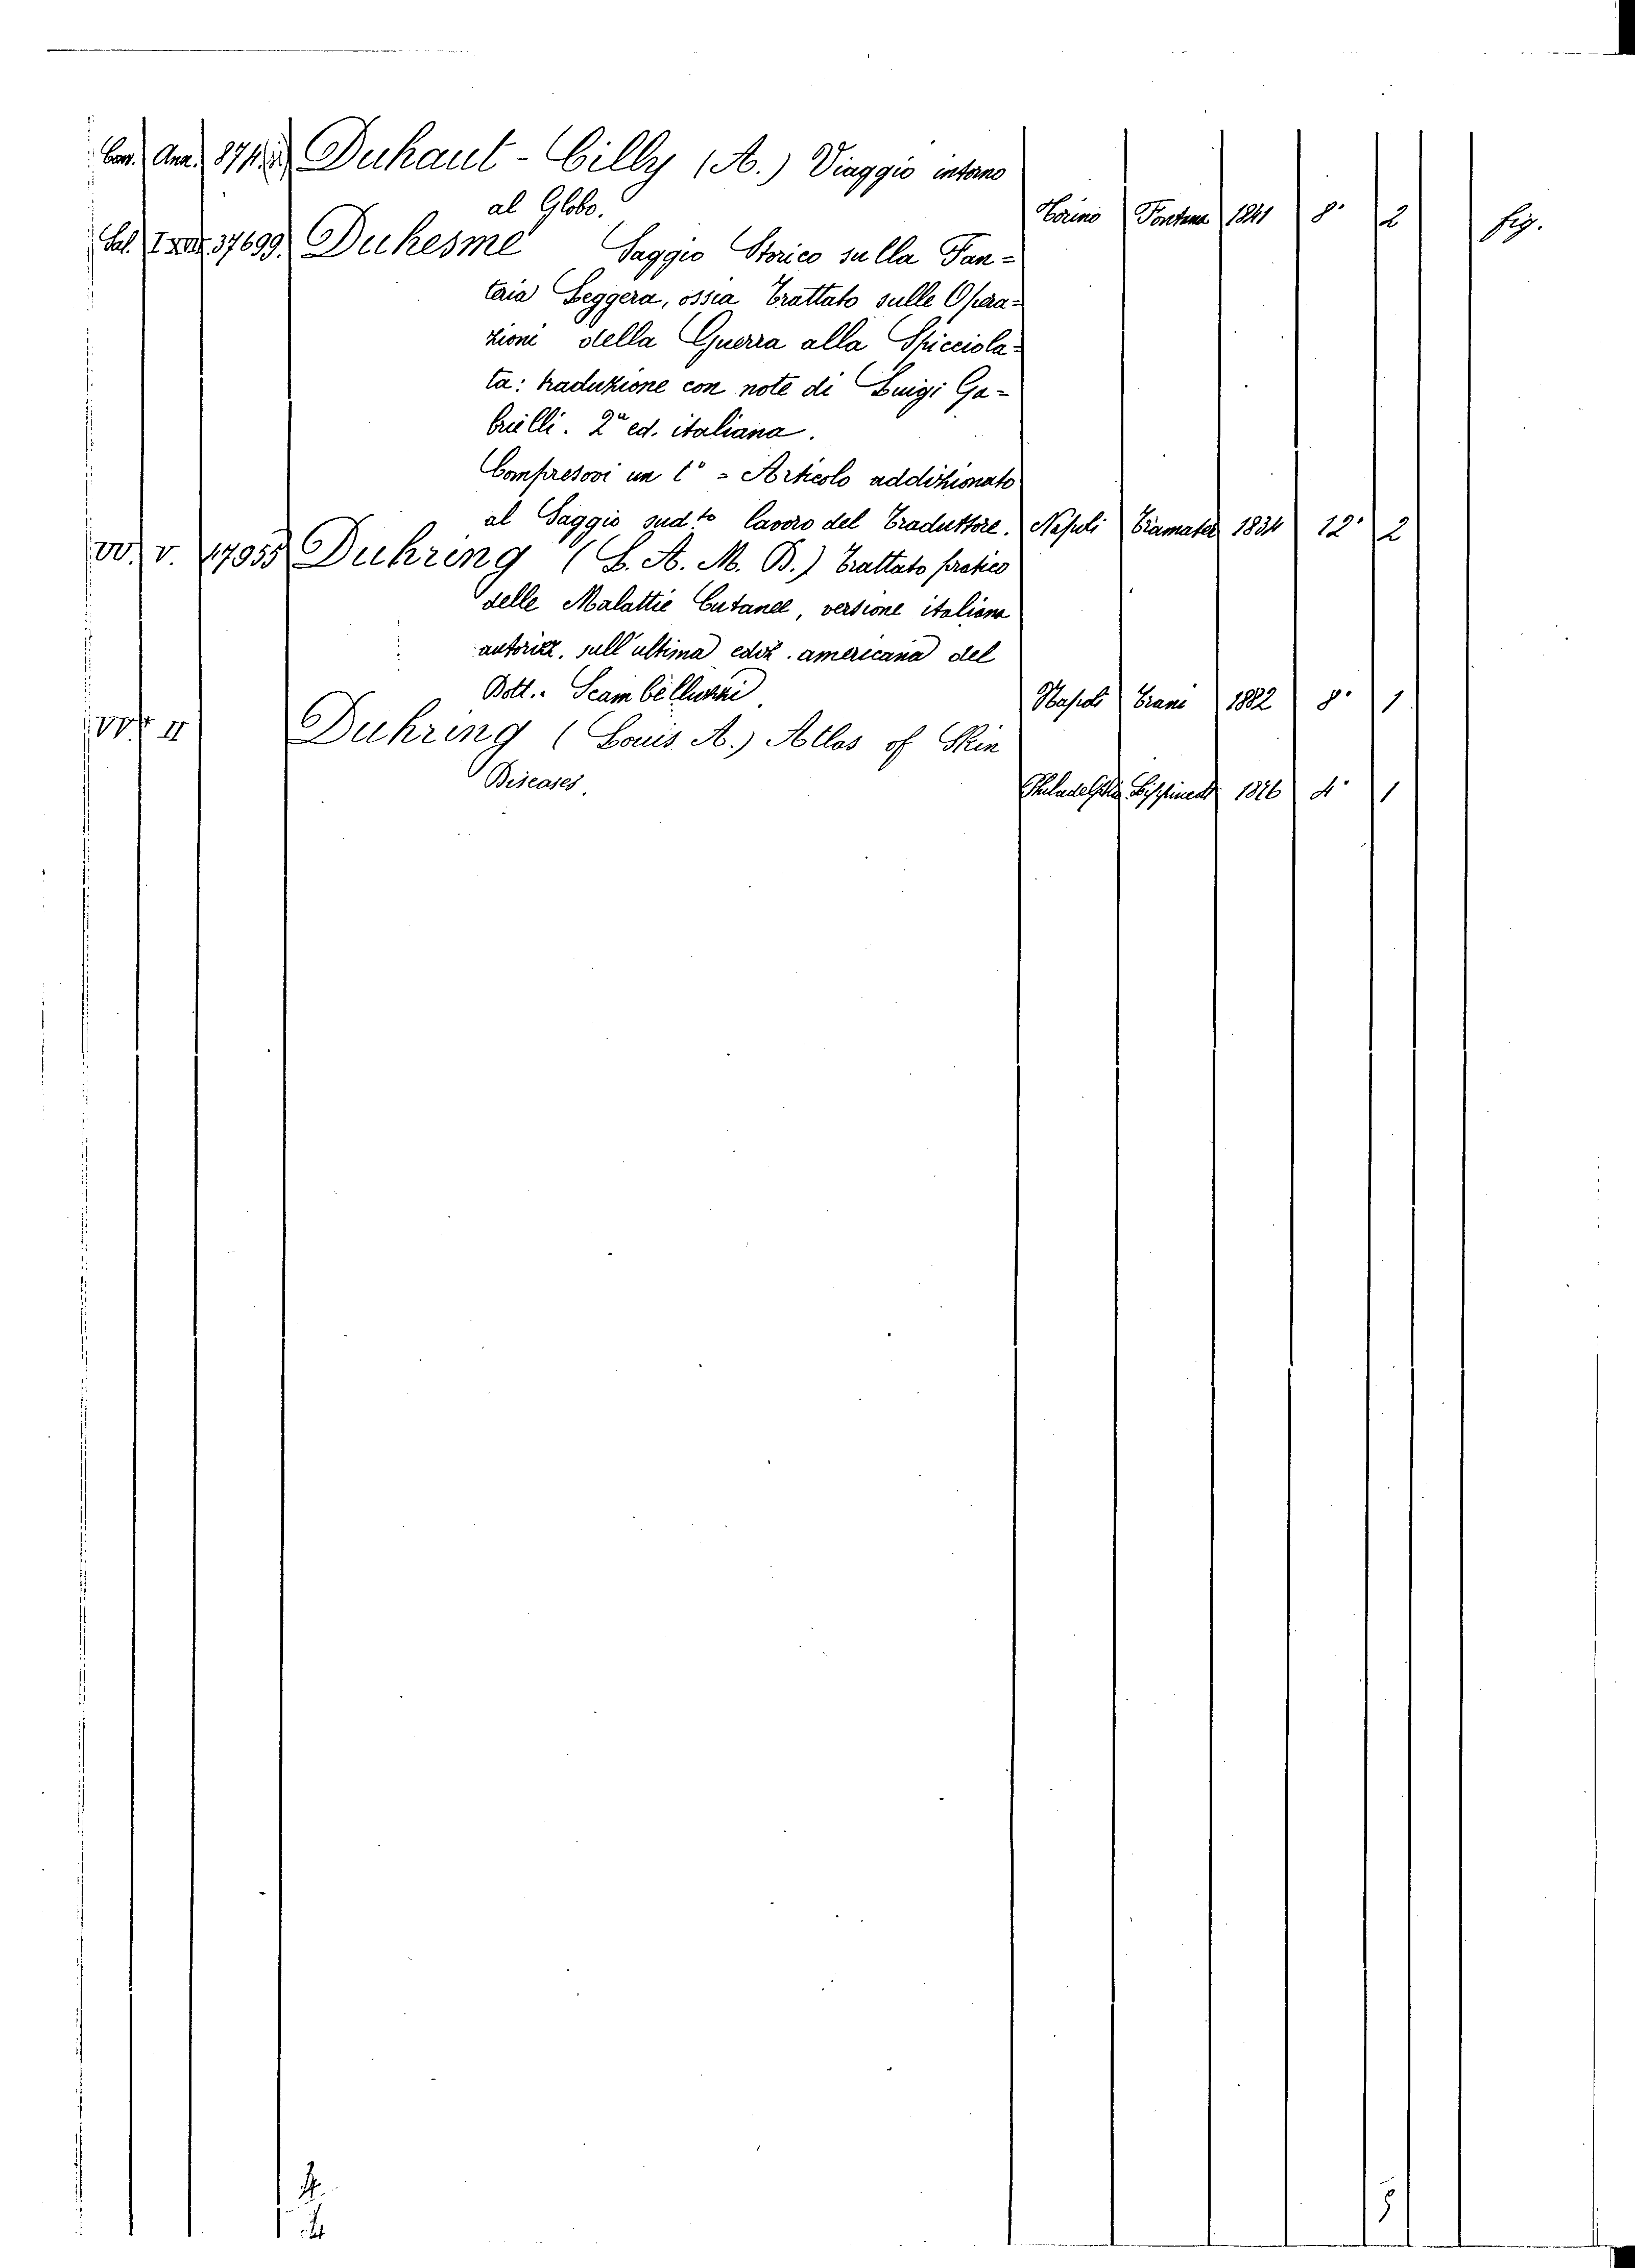 Duhaut-Cilly (A.) Viaggio intorno
al Globo. Torino Fontana 1841 8° 2 fig.
Sal. 37699. Duhesme Saggio Storico sulla Fan=
teria Leggera, ossia Trattato sulle Opera=
zioni della Guerra alla Spicciola=
ta: traduzione con note di Luigi Ga=
brielli. 2ª ed. italiana.
Compresovi un t° = Articolo addizionato
al Saggio sud.to lavoro del Traduttore. Napoli Tramater 1834 12° 2
VV. V. 17955 Duhring (L. A. M. D.) Trattato pratico
delle Malattie Cutanee, versione italiana
autorizz. sull'ultima ediz. americana del
Dott. Scambelluzzi. Napoli Trani 1882 8° 1
II Duhring (Louis A.) Atlas of Skin
Diseases. Philadelphia Lippincott 1876 4° 1
4.
5
4